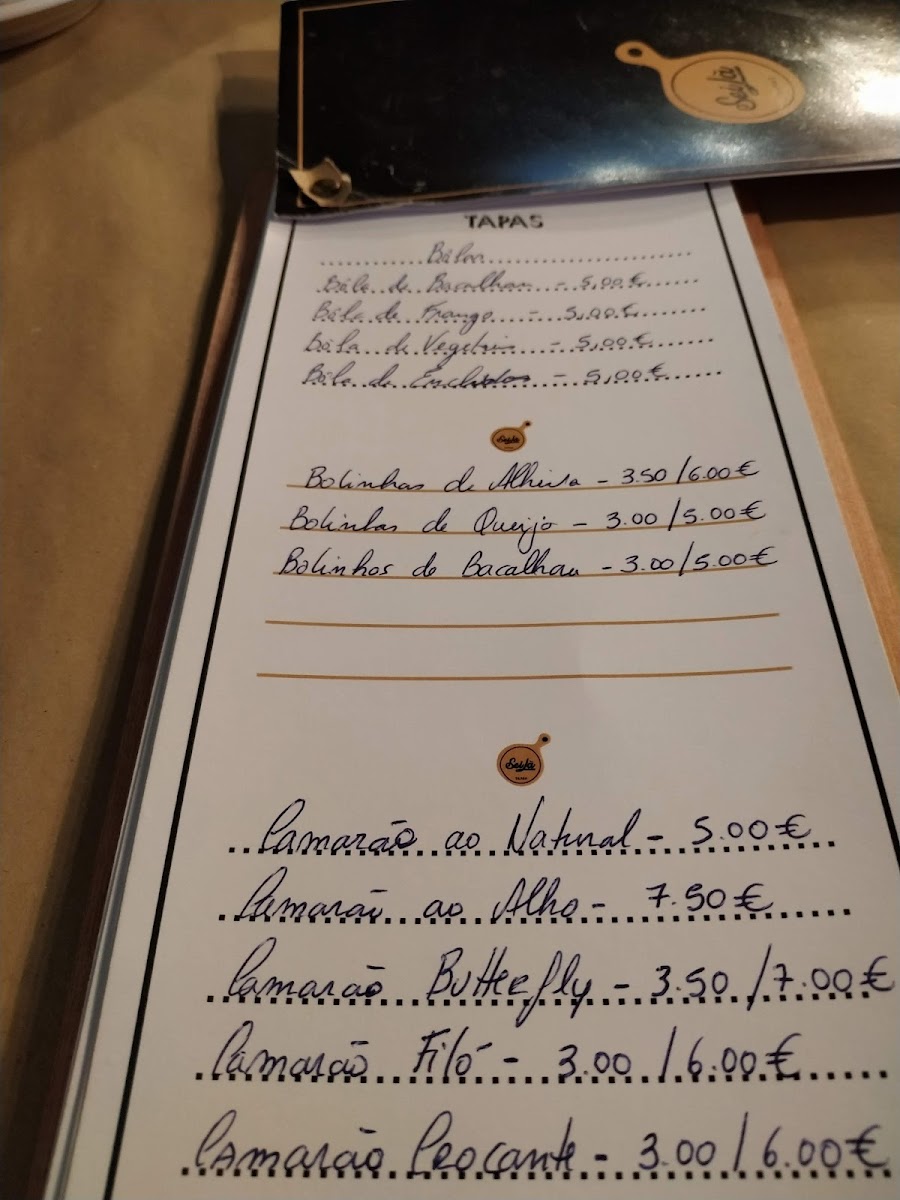 Seilá
TAPAS
Bôlas
Bôla de Bacalhau - 5,00€
Bôla de Frango - 5,00€
Bôla de Vegetais - 5,00€
Bôla de Enchidos - 5,00€
Seilá
Bolinhas de Alheira - 3.50/6.00€
Bolinhas de Queijo - 3.00/5.00€
Bolinhos de Bacalhau - 3.00/5.00€
Seilá
Camarão ao Natural - 5.00€
Camarão ao Alho - 7.50€
Camarão Butterfly - 3.50/7.00€
Camarão Filó - 3.00/6.00€
Camarão Crocante - 3.00/6.00€